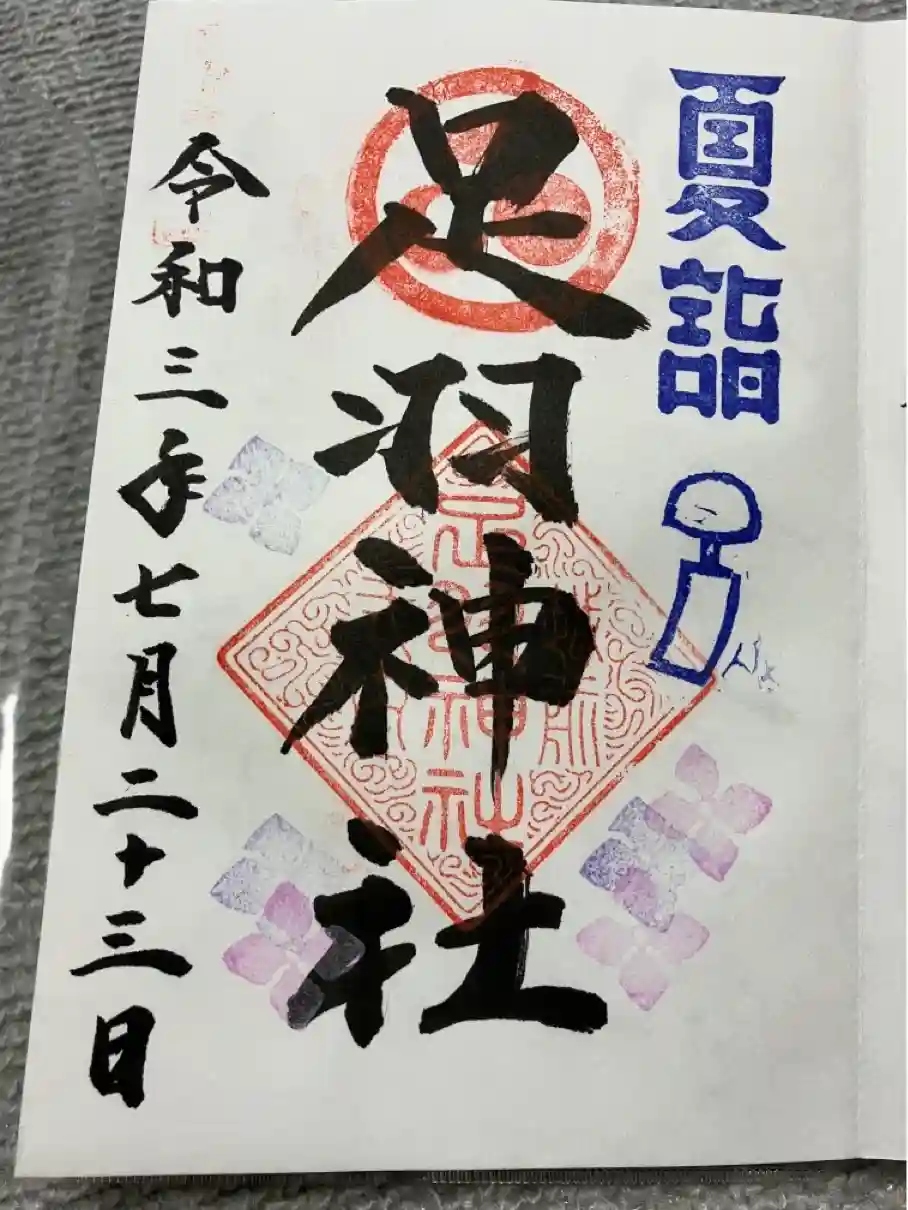 夏詣
足羽神社
令和三年七月二十三日